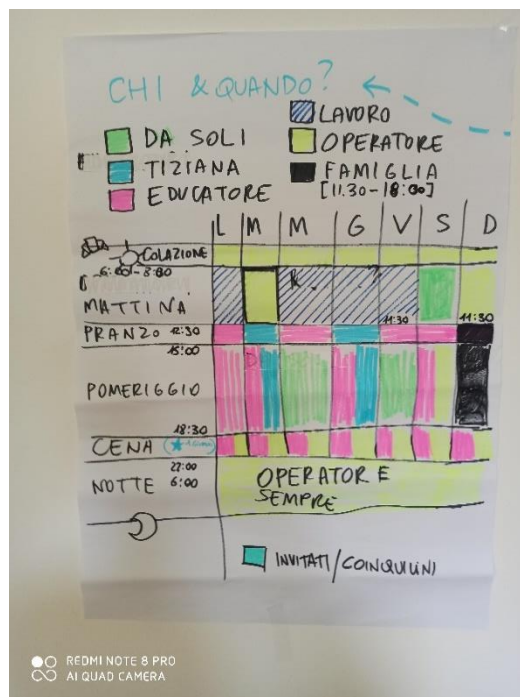 CHI & QUANDO?
LAVORO
DA SOLI
OPERATORE
TIZIANA
FAMIGLIA
[11.30-18:00]
EDUCATORE
L M M G V S D
COLAZIONE
6:00-8:00
MATTINA
11:30 11:30
PRANZO 12:30
15:00
POMERIGGIO
18:30
CENA
22:00
NOTTE 6:00
OPERATORE
SEMPRE
INVITATI/COINQUILINI
REDMI NOTE 8 PRO
AI QUAD CAMERA